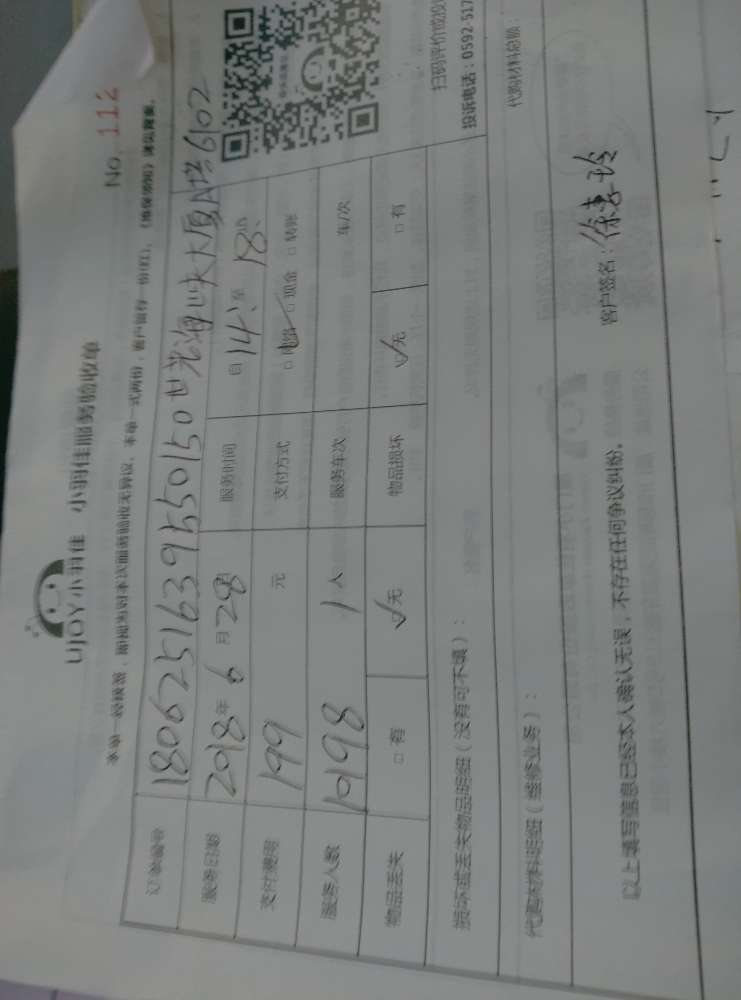 UJOY小羽佳 小羽佳服务验收单
No. 112
本单一经签署，即视为对本次服务验收无异议，本单一式两份，客户留存一份(红)，《维保须知》详见背面。
订单编号 1806251639550150世茂海峡大厦A塔6102
服务日期 2018年6月28日 服务时间 日14:至18:
支付费用 199 元 支付方式 □网络 □现金 □转账
服务人数 10198 1人 服务车次 车/次
物品丢失 □有 ☑无 物品损坏 ☑无 □有
扫码评价或投诉
投诉电话：0592-517
损坏或丢失物品明细（没有可不填）：
代购材料明细（维修业务）：
代购材料总额：
以上填写信息已经本人确认无误，不存在任何争议纠纷。
客户签名：徐惠玲